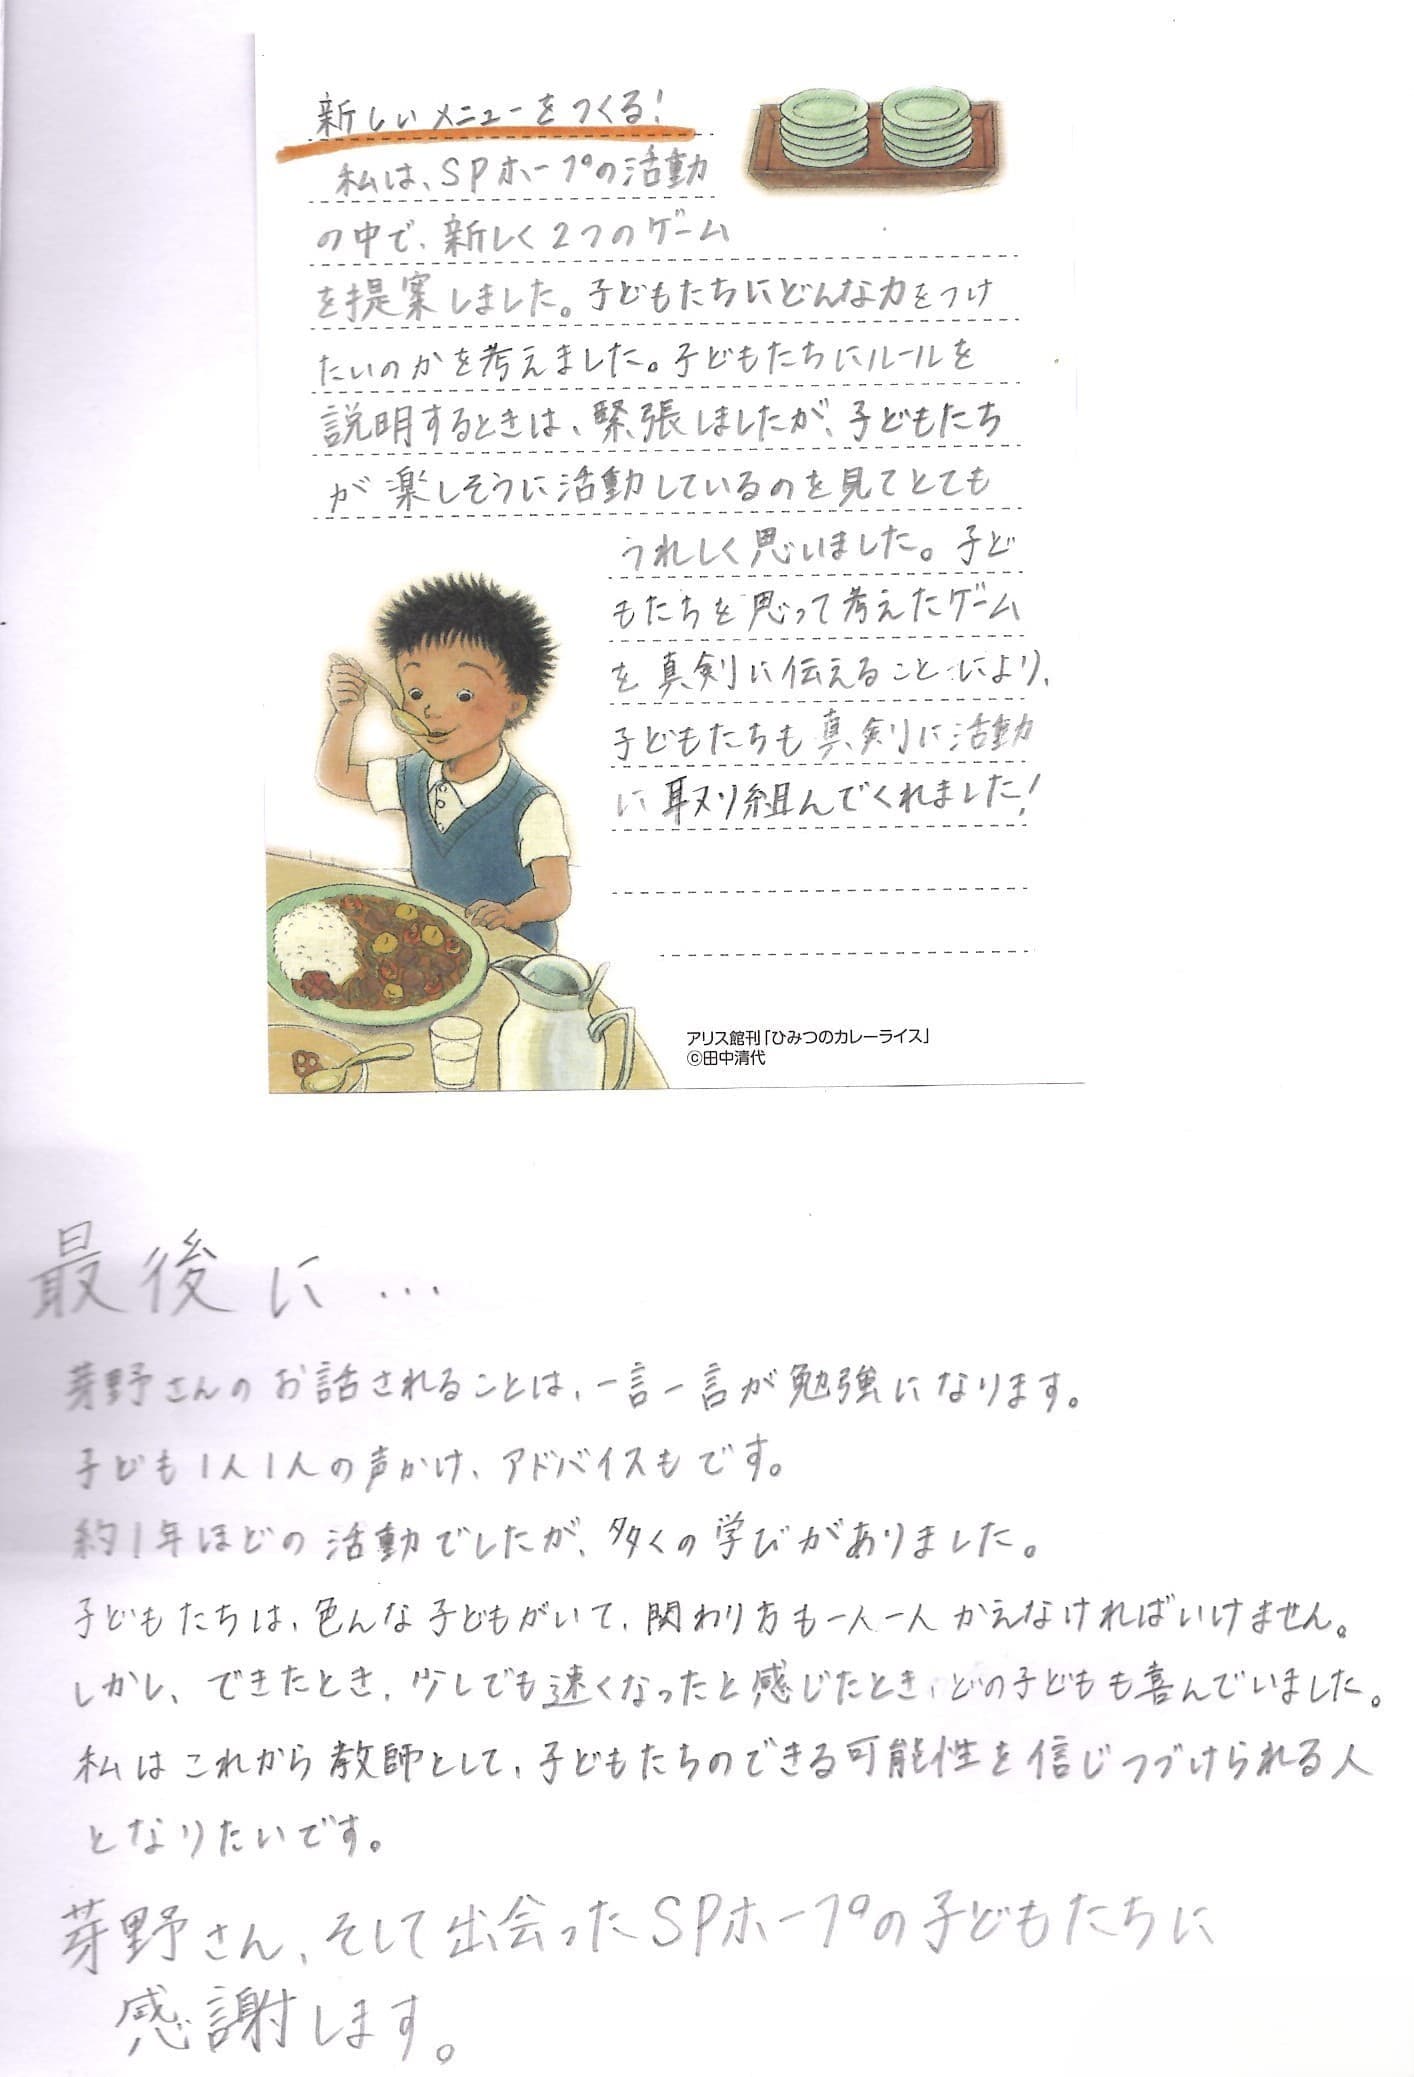 新しいメニューをつくる!
私は、SPホープの活動
の中で、新しく2つのゲーム
を提案しました。子どもたちにどんな力をつけ
たいのかを考えました。子どもたちにルールを
説明するときは、緊張しましたが、子どもたち
が楽しそうに活動しているのを見てとても
うれしく思いました。子ど
もたちを思って考えたゲーム
を真剣に伝えることにより、
子どもたちも真剣に活動
に取り組んでくれました!
アリス館刊「ひみつのカレーライス」
©田中清代
最後に…
芽野さんのお話されることは、一言一言が勉強になります。
子ども1人1人の声かけ、アドバイスもです。
約1年ほどの活動でしたが、多くの学びがありました。
子どもたちは、色んな子どもがいて、関わり方も一人一人かえなければいけません。
しかし、できたとき、少しでも速くなったと感じたとき、どの子どもも喜んでいました。
私はこれから教師として、子どもたちのできる可能性を信じつづけられる人
となりたいです。
芽野さん、そして出会ったSPホープの子どもたちに
感謝します。